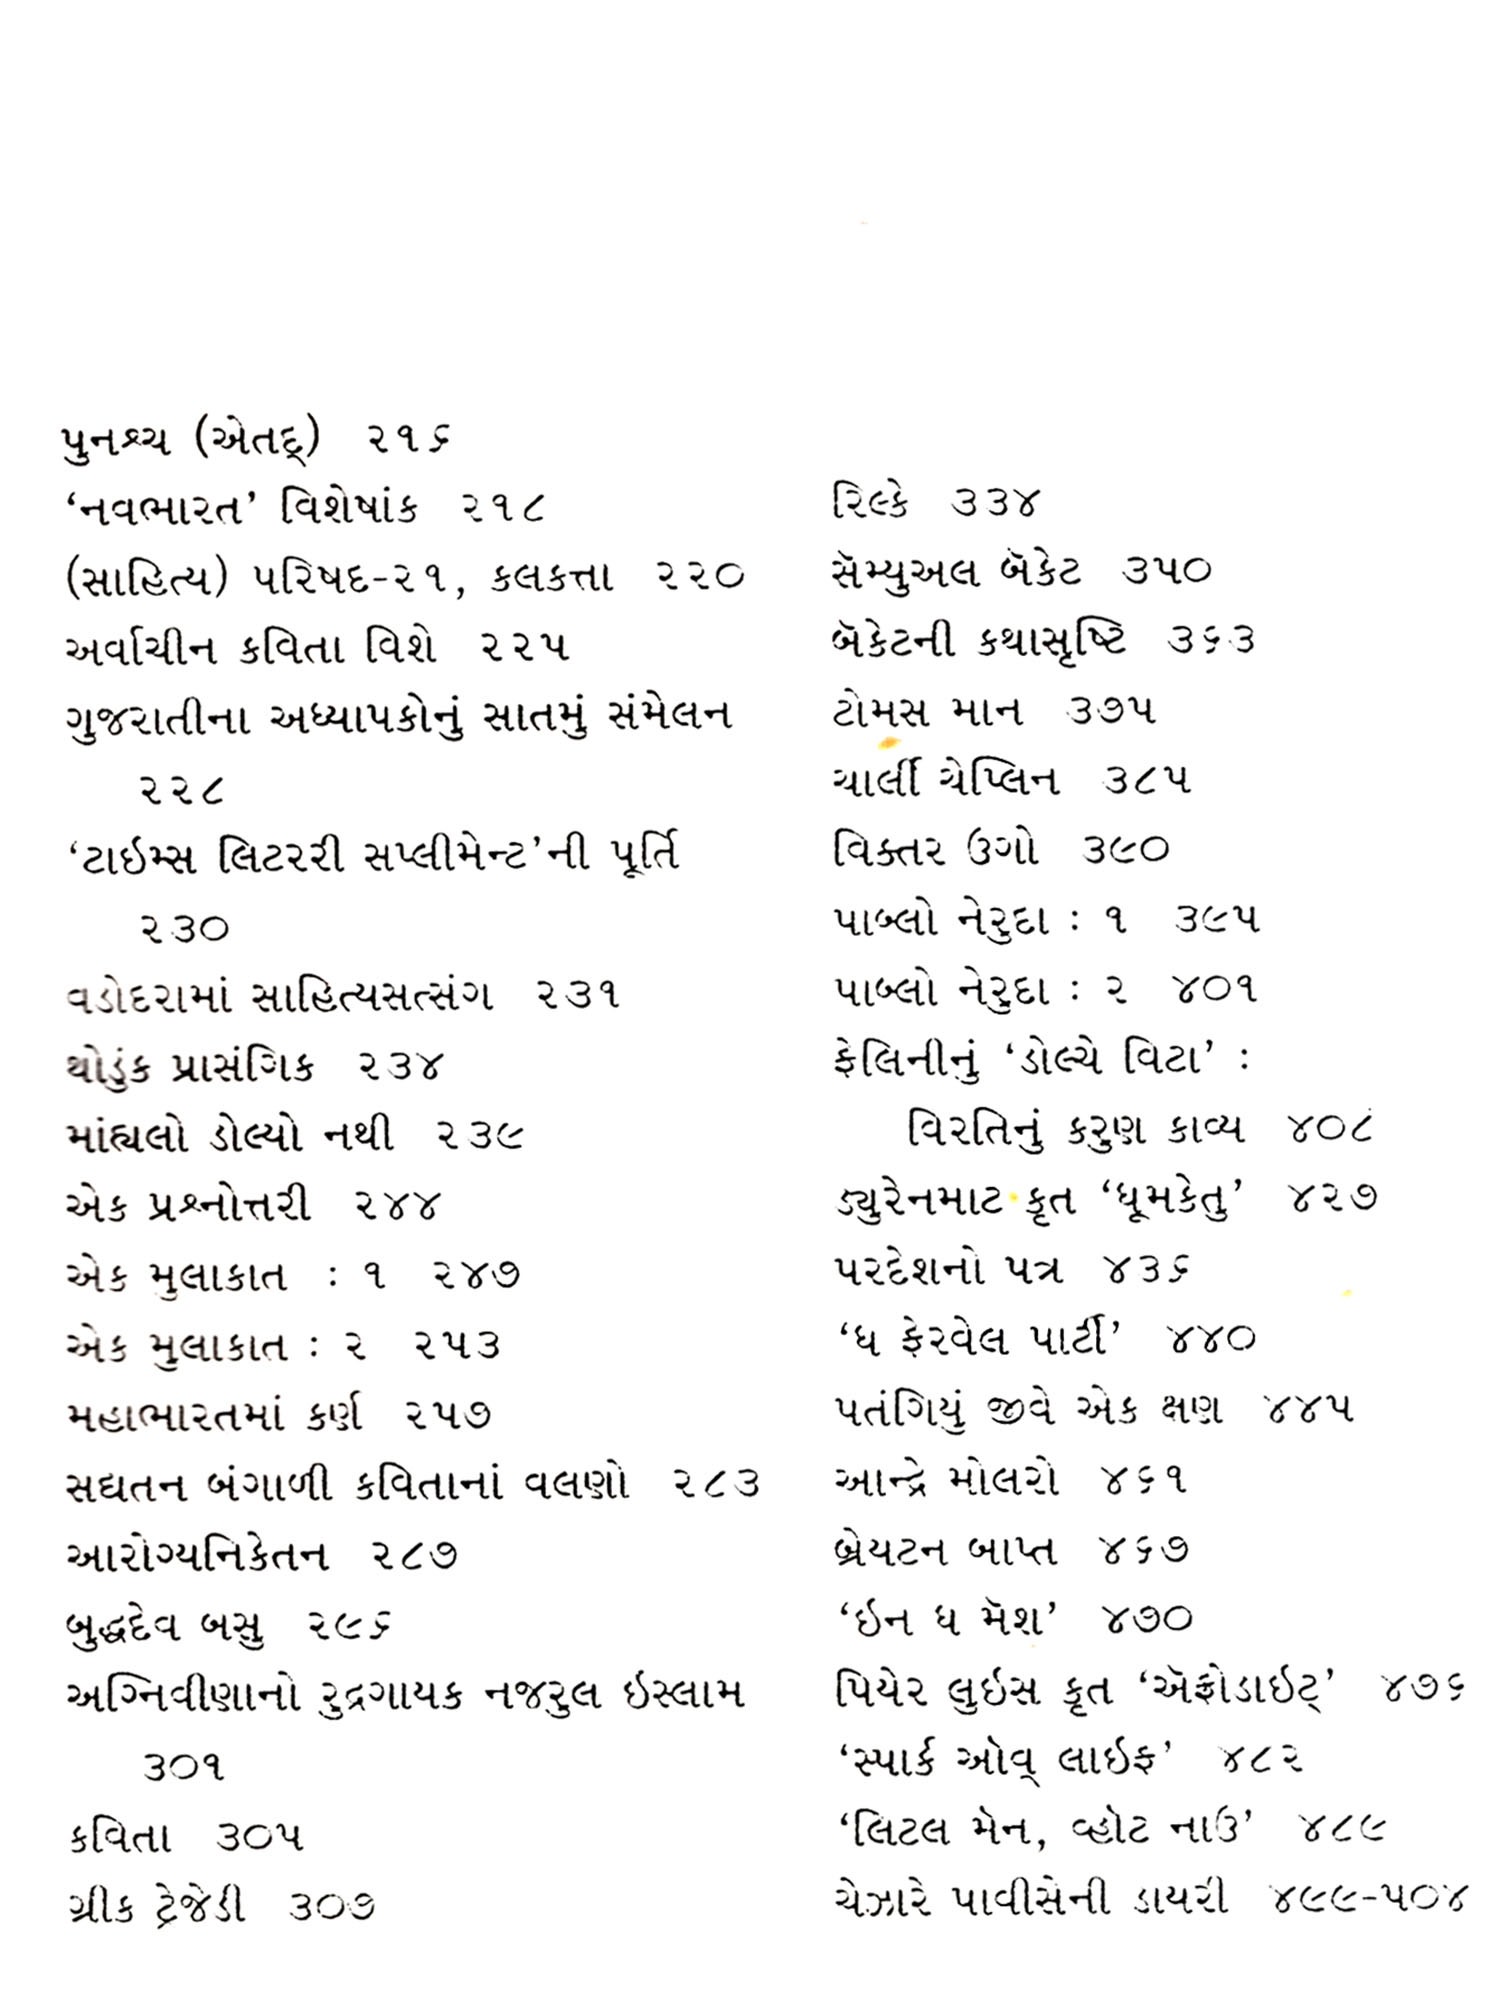 પુનશ્ચ (એતદ્) ૨૧૬
‘નવભારત’ વિશેષાંક ૨૧૮
(સાહિત્ય) પરિષદ-૨૧, કલકત્તા ૨૨૦
અર્વાચીન કવિતા વિશે ૨૨૫
ગુજરાતીના અધ્યાપકોનું સાતમું સંમેલન
૨૨૮
‘ટાઇમ્સ લિટરરી સપ્લીમેન્ટ’ની પૂર્તિ
૨૩૦
વડોદરામાં સાહિત્યસત્સંગ ૨૩૧
થોડુંક પ્રાસંગિક ૨૩૪
માંહ્યલો ડોલ્યો નથી ૨૩૯
એક પ્રશ્નોત્તરી ૨૪૪
એક મુલાકાત : ૧ ૨૪૭
એક મુલાકાત : ૨ ૨૫૩
મહાભારતમાં કર્ણ ૨૫૭
સદ્યતન બંગાળી કવિતાનાં વલણો ૨૮૩
આરોગ્યનિકેતન ૨૮૭
બુદ્ધદેવ બસુ ૨૯૬
અગ્નિવીણાનો રુદ્રગાયક નજરુલ ઇસ્લામ
૩૦૧
કવિતા ૩૦૫
ગ્રીક ટ્રેજેડી ૩૦૭
રિલ્કે ૩૩૪
સૅમ્યુઅલ બૅકેટ ૩૫૦
બૅકેટની કથાસૃષ્ટિ ૩૬૩
ટોમસ માન ૩૭૫
ચાર્લી ચેપ્લિન ૩૮૫
વિક્તર ઉગો ૩૯૦
પાબ્લો નેરુદા : ૧ ૩૯૫
પાબ્લો નેરુદા : ૨ ૪૦૧
ફેલિનીનું ‘ડોલ્ચે વિટા’ :
વિરતિનું કરુણ કાવ્ય ૪૦૮
ડ્યુરેનમાટ કૃત ‘ધૂમકેતુ’ ૪૨૭
પરદેશનો પત્ર ૪૩૬
‘ધ ફેરવેલ પાર્ટી’ ૪૪૦
પતંગિયું જીવે એક ક્ષણ ૪૪૫
આન્દ્રે મોલરો ૪૬૧
બ્રેયટન બાપ્ત ૪૬૭
‘ઇન ધ મૅશ’ ૪૭૦
પિયેર લુઇસ કૃત ‘ઍફ્રોડાઇટ્’ ૪૭૬
‘સ્પાર્ક ઓવ્ લાઇફ’ ૪૮૨
‘લિટલ મેન, વ્હોટ નાઉ’ ૪૮૯
ચેઝારે પાવીસેની ડાયરી ૪૯૯-૫૦૪